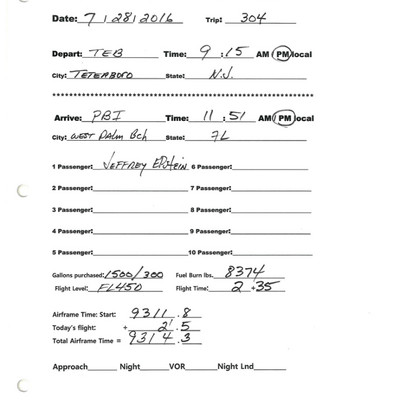 Date: 7/28/2016 Trip: 304
Depart: TEB Time: 9:15 AM/PM local
City: TETERBORO State: N.J.
**********************************************************************
Arrive: PBI Time: 11:51 AM/PM local
City: WEST PALM Bch State: FL
1 Passenger: JEFFREY EPSTEIN 6 Passenger:
2 Passenger: 7 Passenger:
3 Passenger: 8 Passenger:
4 Passenger: 9 Passenger:
5 Passenger: 10 Passenger:
Gallons purchased: 1500/300 Fuel Burn lbs. 8374
Flight Level: FL450 Flight Time: 2 + 35
Airframe Time: Start: 9311.8
Today's flight: + 2.5
Total Airframe Time = 9314.3
Approach Night VOR Night Lnd